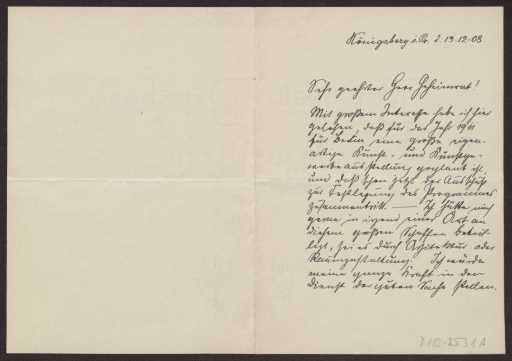 Königsberg i. Pr. d. 19.12.08.
Sehr geehrter Herr Geheimrat!
Mit großem Interesse habe ich hier
gelesen, daß für das Jahr 1911
für Berlin eine große eigen-
artige Kunst- und Kunstge-
werbeausstellung geplant ist,
und daß schon jetzt der Ausschuß
zur Festlegung des Programmes
zusammentritt. — Ich hätte mich
gerne in irgend einer Art an
diesem großen Schaffen betei-
ligt, sei es durch Architektur oder
Raumgestaltung. Ich würde
meine ganze Kraft in den
Dienst der guten Sache stellen.